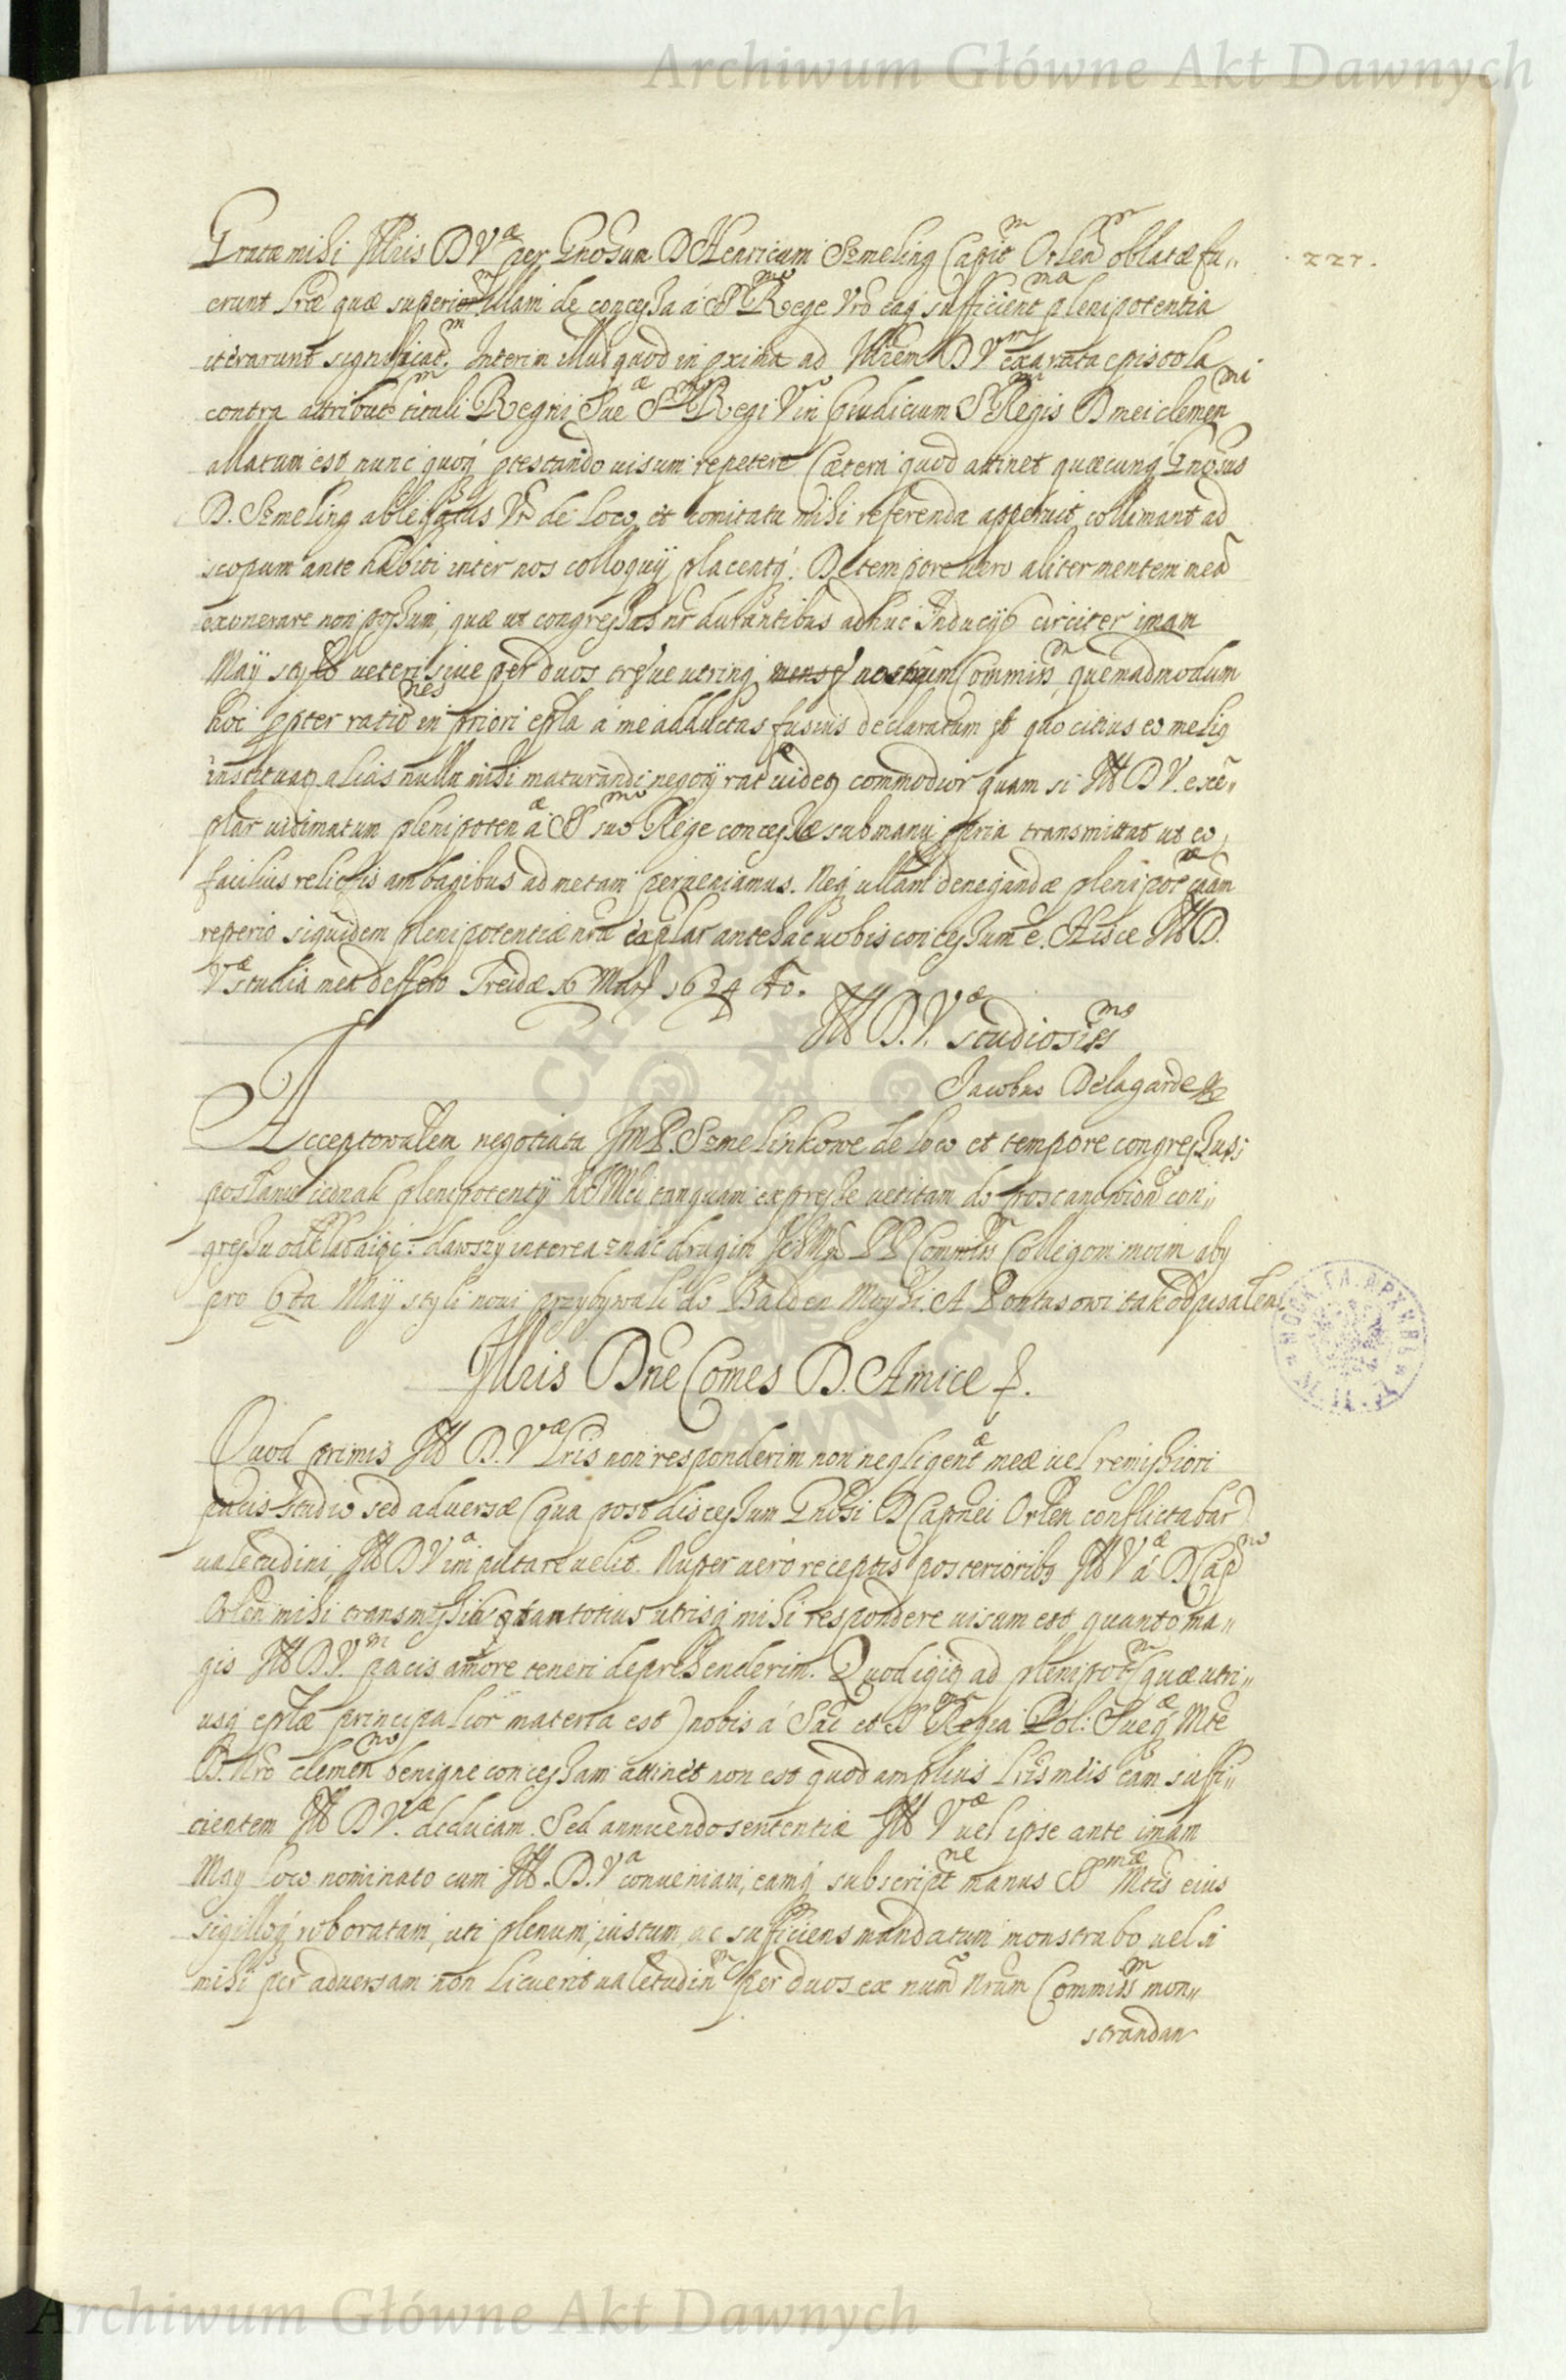 Archiwum Główne Akt Dawnych
227.
Gratæ mihi Illris D V^æ per Gnosum D Henricum Szmeling Capit^m Orlen^m oblatæ fu„
erunt lræ quæ superiorem illam de concessa á S^mo Rege Vro eaq́ sufficient^ma plenipotentia
iterarunt significat^m. Interim illud quod in proxima ad Illrem D V^m exarata epistola
contra attribut^m tituli Regni Sue^æ S^mo Regi V^o in præiudicium S^mi Regis D mei clemen^mi
allatum est nunc quoq́ ptestando uisum repetere Cætera quod attinet quæcunq́ Gnosus
D. Szmeling ablegatus Vr de loco et comitatu mihi referenda apperuit collimant ad
scopum ante habiti inter nos colloquÿ placentq́. De tempore uero aliter mentem meã
exonerare non possum, quæ ut congressus nr durantibus adhuc Inducÿs circiter imam
Maÿ styli ueteri siue per duos tresue utrinq́ nostrum Commiss^m quemadmodum
hoc ppter ratio^nes in priori epla á me adductas fusius declaratum est quo citius eo melius
instituat^r alias nulla mihi maturandi negotÿ rat^æ uidet^r commodior quam si Ill D V. exẽ„
plar uidimatum plenipoten^æ á S^mo suo Rege concessæ sub manu ppria transmittat ut eo
facilius relictis ambagibus ad metam perueniamus. Neq́ ullam denegandæ plenipot^æ cãam
reperio siquidem plenipotentiæ nræ exẽplar antehac uobis concessum ẽ. Hisce Ill D.
V^æ studia mea deffero Treidæ 16 Marty 1624 Ao.
Ill D. V.^æ studiosiss^mo
Jacobus Delagarde
Acceptowałem negotiata Jm P. Szmelinkowe de loco et tempore congressus;
postanowienie plenipotenty KJMci tanquam expresse uetitam do proscanowion^a con„
gressu odkładaiąc: dawszy interea znać drugim Ich Mm PP Commiss^m Collegom moim aby
pro 6ta Maÿ styli noui przybywali do Balden Moyzi. A Pontusowi tak odpisałem.
Illris Dne Comes D. Amice &.
Quod primis Ill D. V^æ lris non responderim non negligent^æ meæ uel remissiori
pacis studio sed aduersæ (qua post discessum Gnosi D Capnei Orlen conflictabar)
ualetudini, Ill D V^a imputare uelit. Nuper uero receptis posterioribus Ill V^æ á D Cap^no
Orlen mihi transmissis tanto totius utrisq́ mihi respondere uisum est quanto ma„
gis Ill D V.^m pacis amore teneri deprehenderim. Quod igit^r ad plenipot^m (quæ utri„
usq́ eplæ principalior materia est) nobis á Sac et S^ma Regia Pol: Sueq́^æ Mte
D. Nro clemen^mo benigne concessam attinet non est quod amplius lris meis eam suffi„
cientem Ill D V.^æ deducam. Sed annuendo sententiæ Ill V^æ uel ipse ante imam
May loco nominato cum Ill. D. V^a conueniam, eamq́ subscript^ne manus S^mæ Mtis eius
sigilloq́ roboratam, uti plenum, iustum, ac sufficiens mandatum monstrabo, uel si
mihi per aduersam non licuerit ualetudin^m per duos ex num^o Nrum Commiss^m mon„
strandam
Archiwum Główne Akt Dawnych